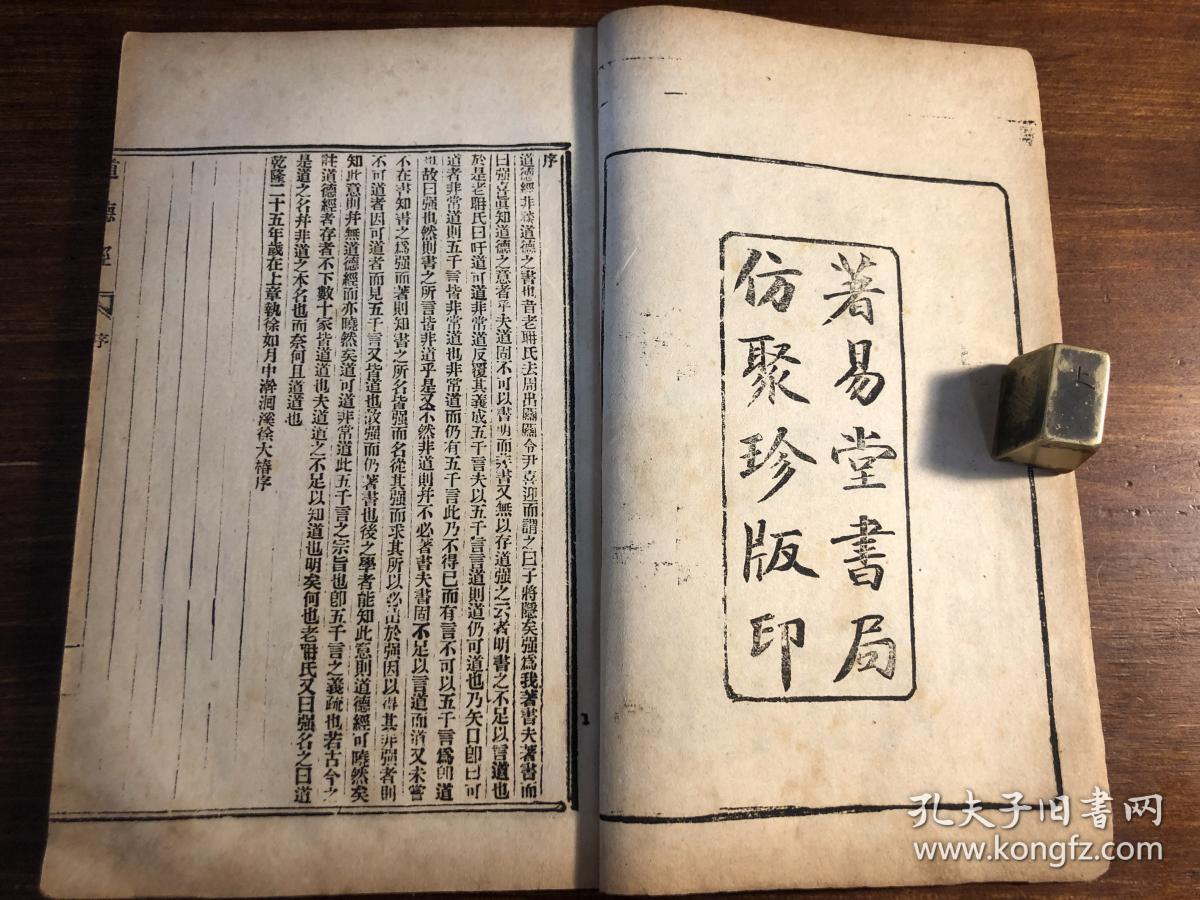 著易堂書局
仿聚珍版印
序
道德經非談道德之書也昔老聃氏去周出關關令尹喜迎而謂之曰子將隱矣强爲我著書夫著書而
曰强喜眞知道德之意者乎夫道固不可以書明而無書又無以存道强之云者明書之不足以言道也
於是老聃氏曰吁道可道非常道反覆其義成五千言夫以五千言言道則道仍可道也乃矢口卽曰可
道者非常道則五千言皆非常道也非常道而仍有五千言此乃不得已而有言不可以五千言爲卽道
也故曰强也然則書之所言皆非道乎是又不然非道則幷不必著書夫書固不足以言道而道又未嘗
不在書知書之爲强而著則知書之所名皆强而名從其强而求其所以必出於强因以得其非强者則
不可道者因可道者而見五千言又皆道也故强而仍著書也後之學者能知此意則道德經可曉然矣
知此意則幷無道德經而亦曉然矣道可道非常道此五千言之宗旨也卽五千言之義疏也若古今之
註道德經者存者不下數十家皆道道也夫道道之不足以知道也明矣何也老聃氏又曰强名之曰道
是道之名幷非道之本名也而奈何且道道也
乾隆二十五年歲在上章執徐如月中澣洄溪徐大椿序
道德經
序
上
孔夫子旧书网
www.kongfz.com